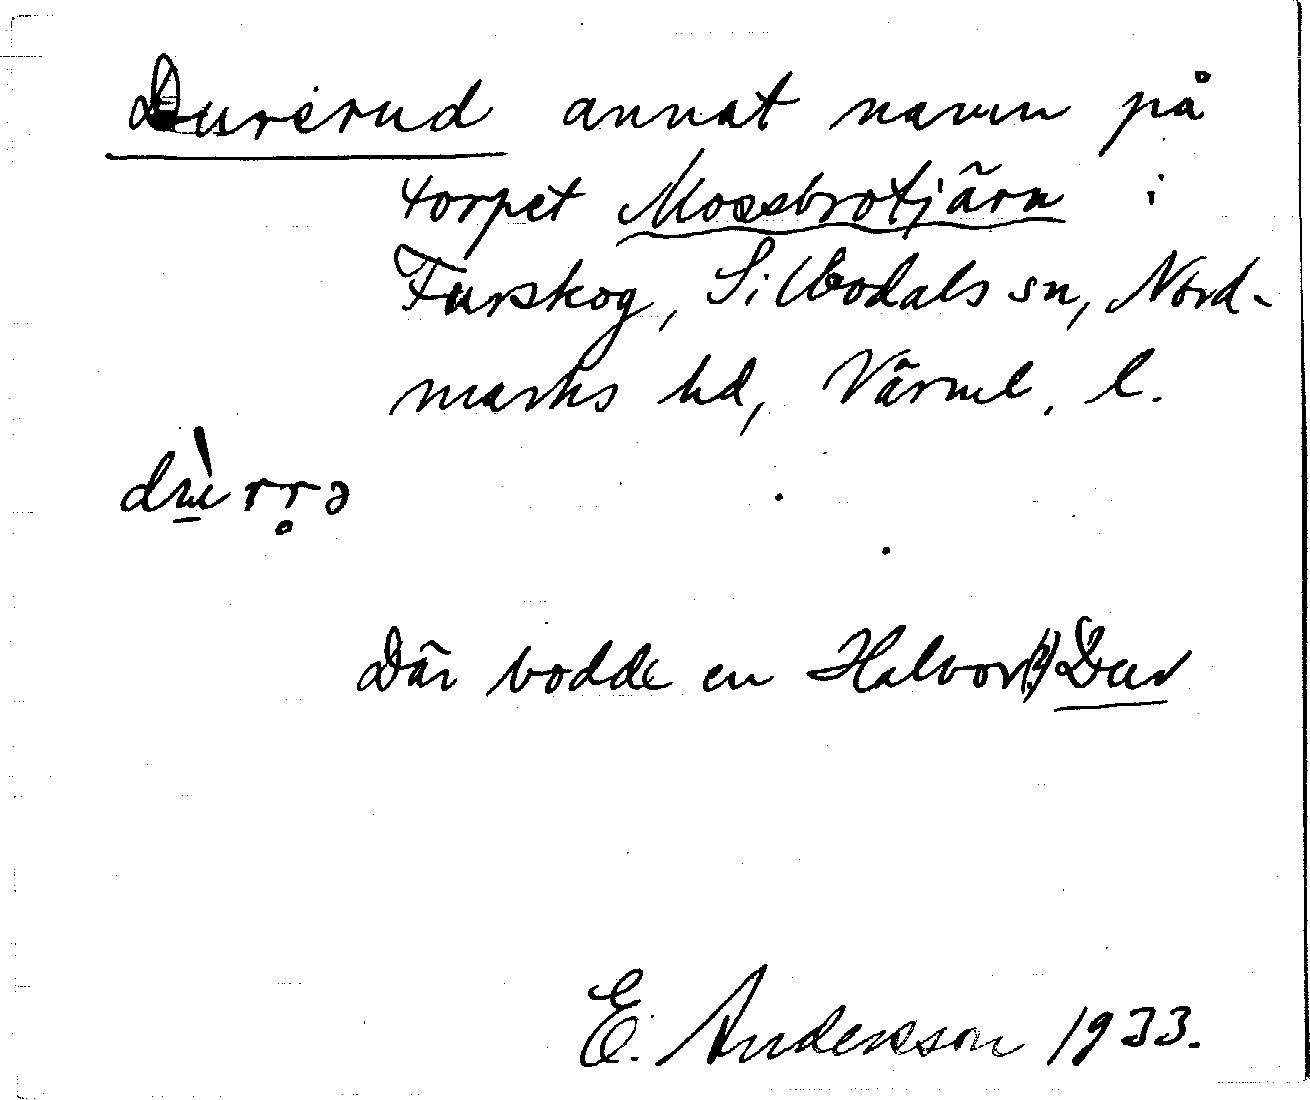 Durerud annat namn på
torpet Mossbrotjärn i
Furskog, Silbodals sn, Nord-
marks hd, Värml. l.
dɯ̀rr̥ə
Där bodde en Halvor(?) Dur
E. Andersson 1933.